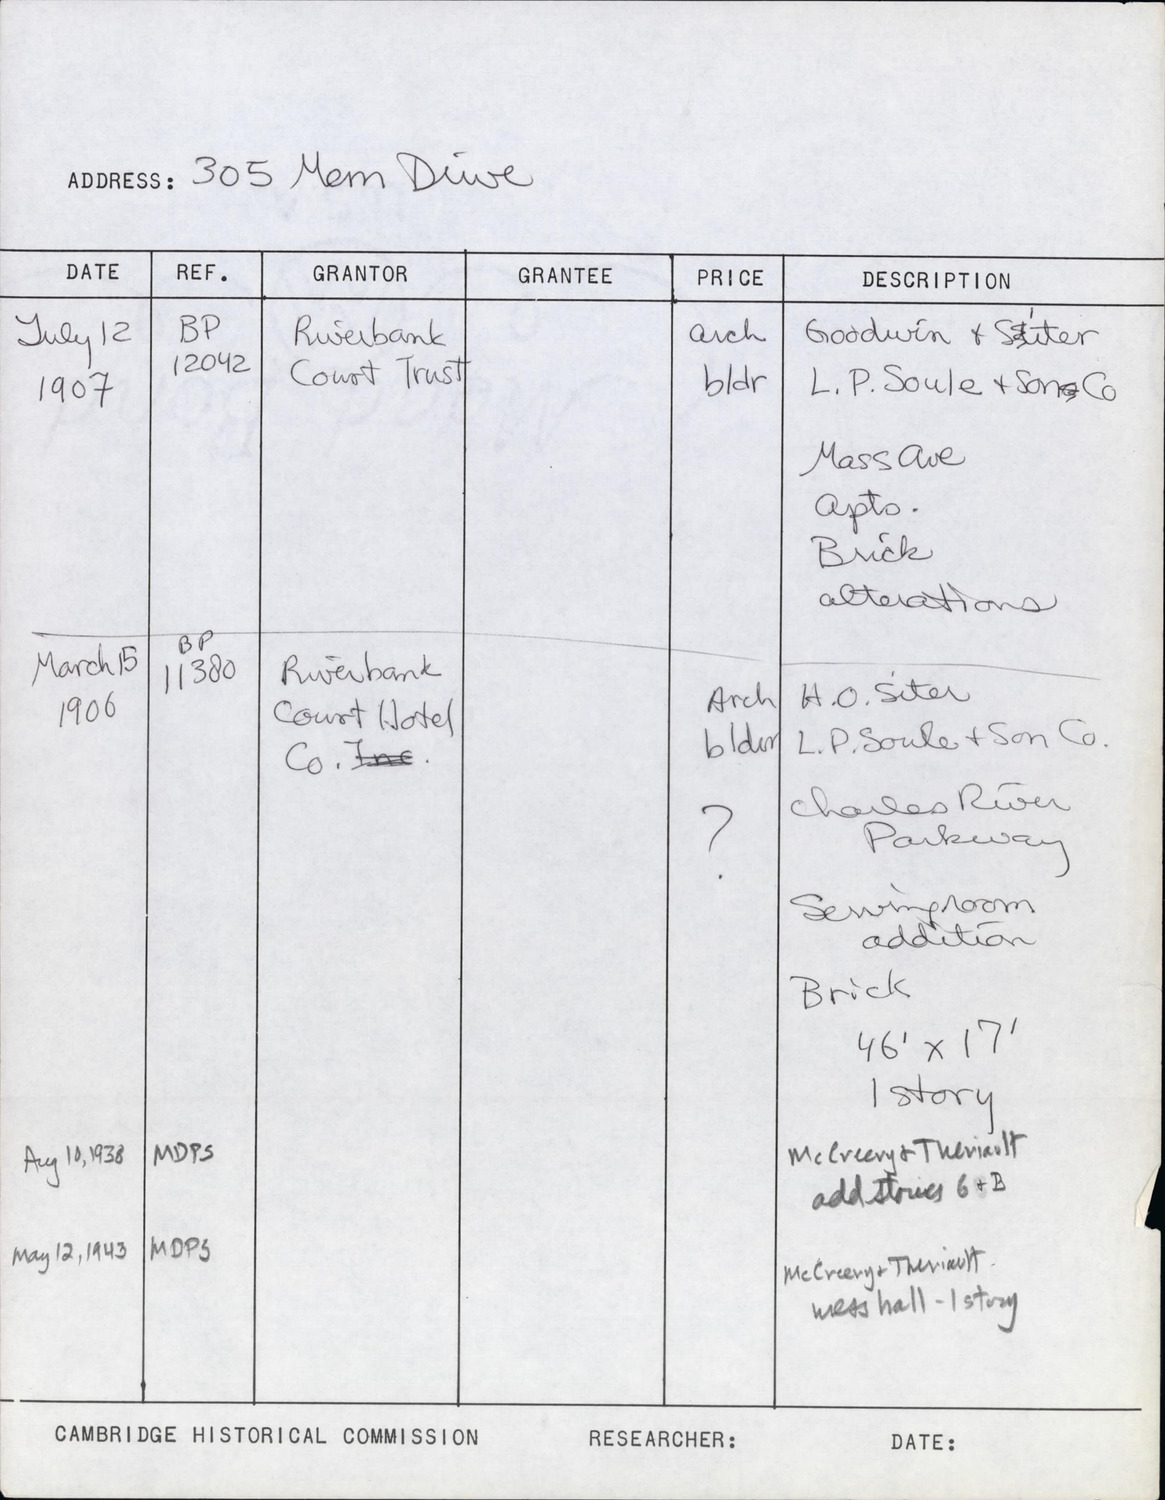 ADDRESS: 305 Mem Drive
DATE REF. GRANTOR GRANTEE PRICE DESCRIPTION
July 12 BP Riverbank arch Goodwin + Siter
1907 12042 Court Trust bldr L.P. Soule + Son Co
Mass Ave
Apts.
Brick
alterations
March 15 BP Riverbank Arch H.O. Siter
1906 11380 Court Hotel bldr L.P. Soule + Son Co.
Co. Inc.
? Charles River
Parkway
Sewing room
addition
Brick
46' x 17'
1 story
Aug 10, 1938 MDPS McCreery + Theriault
add stories 6 + B
May 12, 1943 MDPS McCreery + Theriault
mess hall - 1 story
CAMBRIDGE HISTORICAL COMMISSION RESEARCHER: DATE: